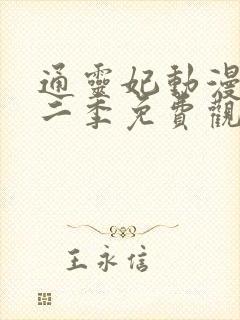 通靈妃動漫
二季免費觀
王永信